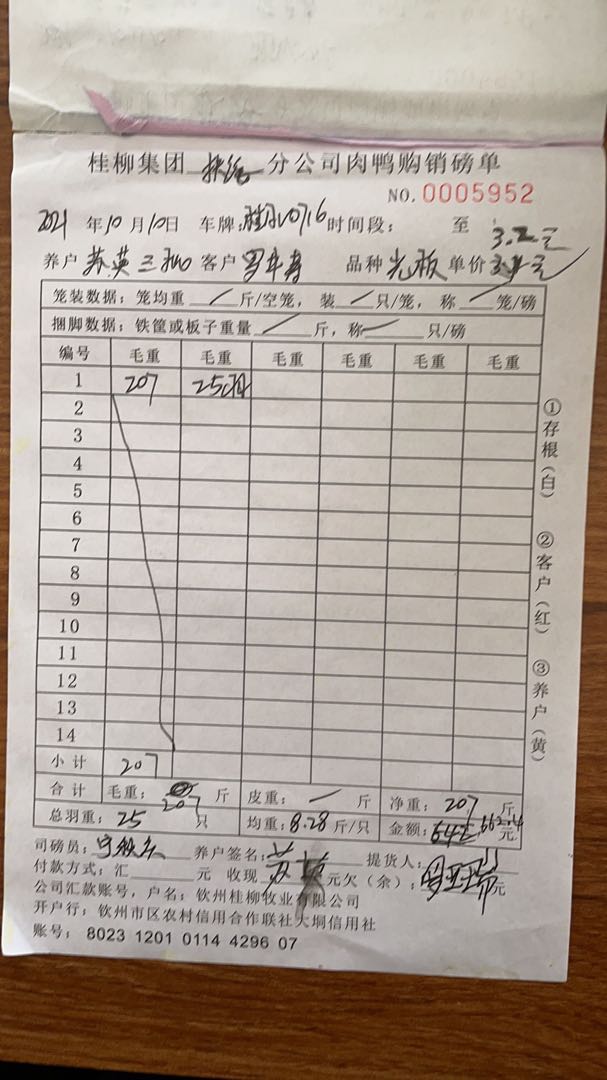 桂柳集团 分公司肉鸭购销磅单
NO.0005952
2021 年10月10日 车牌: 0716 时间段: 至 3.2元
养户 苏英 客户 品种 光板 单价 元
笼装数据: 笼均重 / 斤/空笼, 装 / 只/笼, 称 / 笼/磅
捆脚数据: 铁筐或板子重量 / 斤, 称 / 只/磅
编号 毛重 毛重 毛重 毛重 毛重 毛重
1 207 25只
2
3
4
5
6
7
8
9
10
11
12
13
14
小计 207
合计 毛重: 207 斤 皮重: / 斤 净重: 207 斤
总羽重: 25 只 均重: 8.28 斤/只 金额: 662.4 元
司磅员: 养户签名: 苏英 提货人:
付款方式: 汇 元 收现 元欠(余): 元
公司汇款账号, 户名: 钦州桂柳牧业有限公司
开户行: 钦州市区农村信用合作联社大垌信用社
账号: 8023 1201 0114 4296 07
①存根(白)
②客户(红)
③养户(黄)